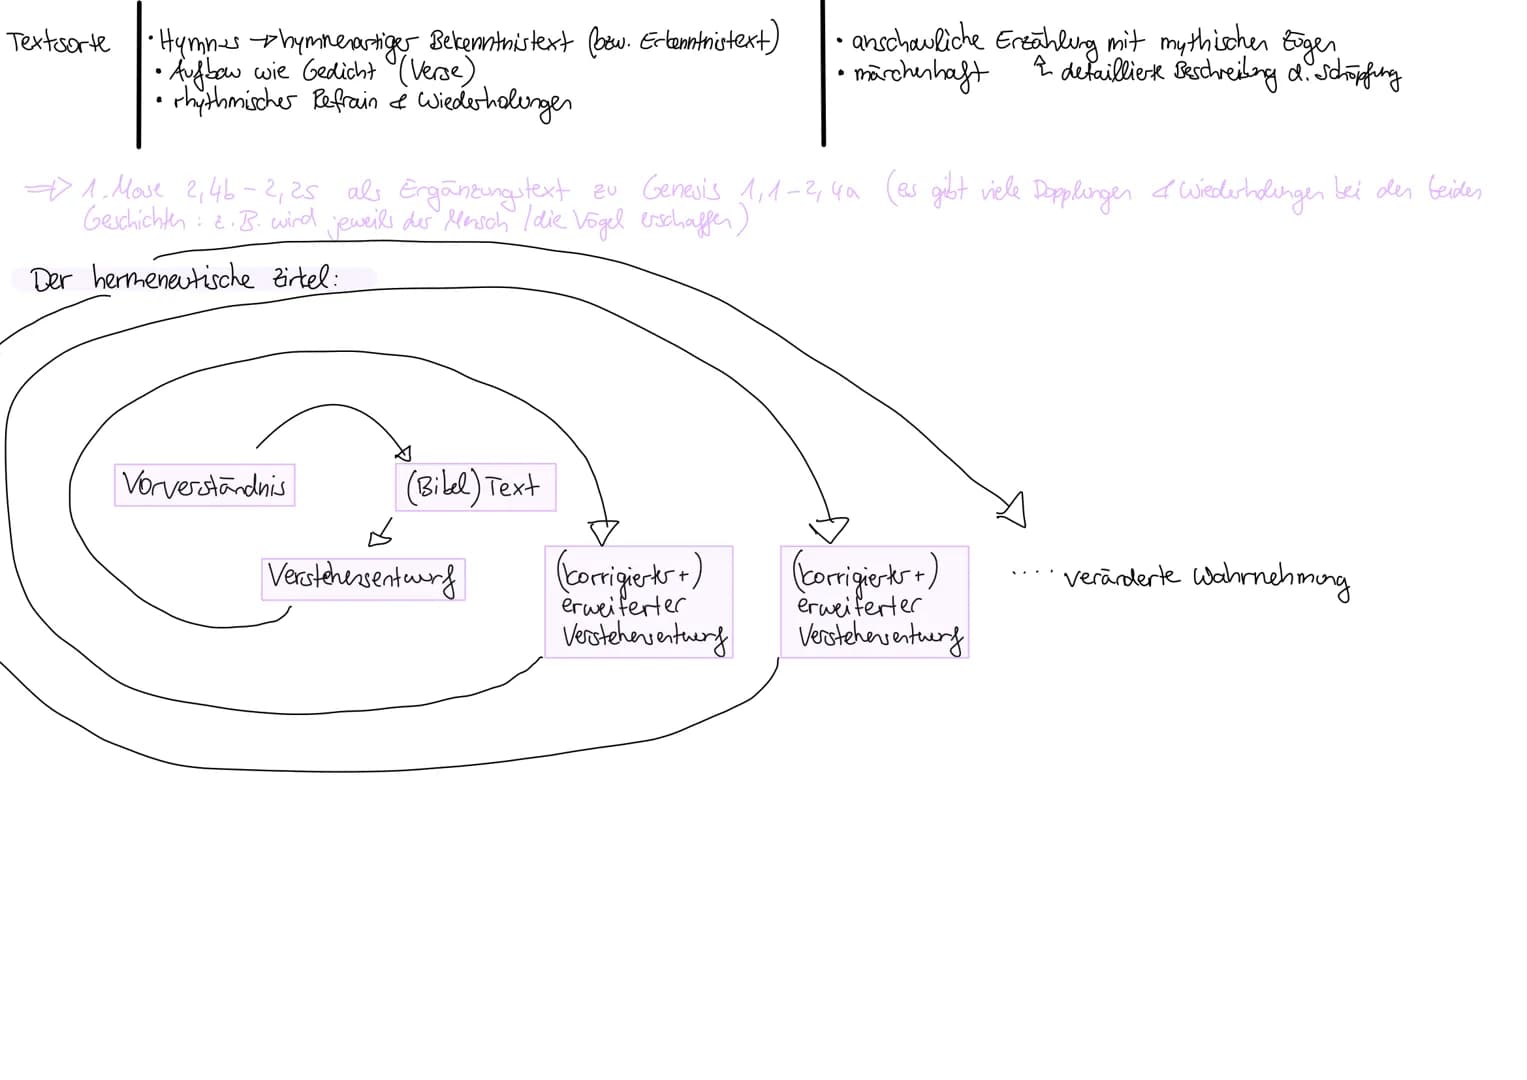 Textsorte
• Hymnus → hymnenartiger Bekenntnistext (bzw. Erkenntnistext)
• Aufbau wie Gedicht (Verse)
• rhythmischer Refrain & Wiederholungen
• anschauliche Erzählung mit mythischen Zügen
• märchenhaft ↑ detaillierte Beschreibung d. Schöpfung
=> 1. Mose 2,4b - 2,25 als Ergänzungstext zu Genesis 1,1 - 2,4a (es gibt viele Dopplungen & Wiederholungen bei den beiden
Geschichten : z.B. wird jeweils der Mensch / die Vögel erschaffen)
Der hermeneutische Zirkel:
Vorverständnis
(Bibel) Text
Verstehensentwurf
(korrigierter +)
erweiterter
Verstehensentwurf
(korrigierter +)
erweiterter
Verstehensentwurf
.... veränderte Wahrnehmung